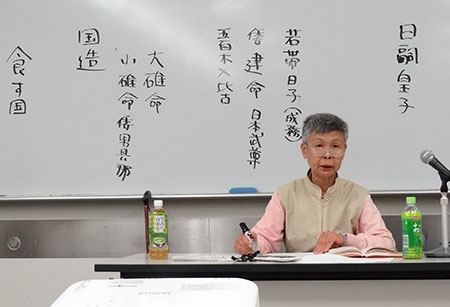 日副皇子
若帯日子(成務)
倭建命 日本武尊
五百木入比古
大碓命
小碓命 倭男具那
国造
食す国